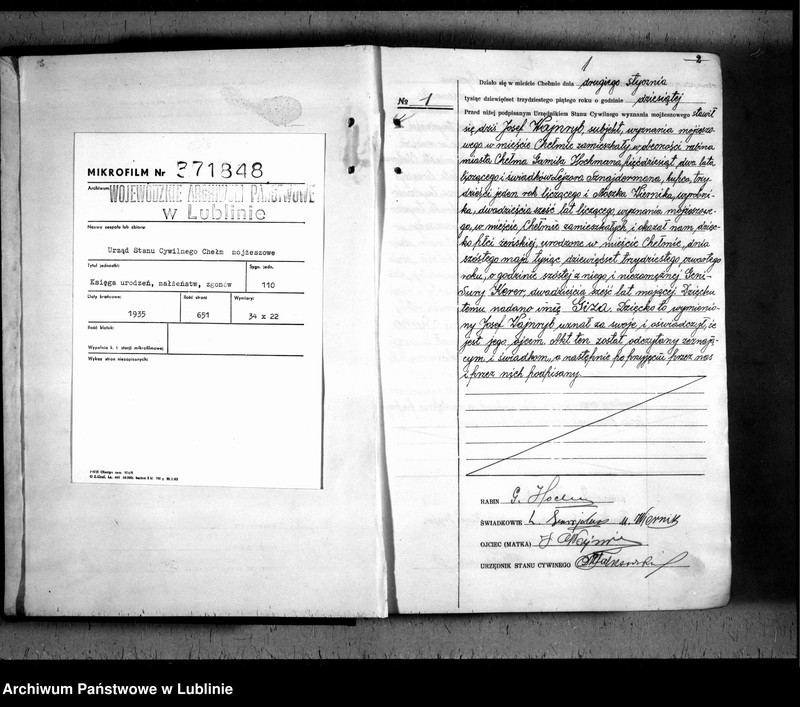 MIKROFILM Nr 371848
Archiwum WOJEWÓDZKIE ARCHIWUM PAŃSTWOWE
w Lublinie
Nazwa zespołu lub zbioru:
Urząd Stanu Cywilnego Chełm mojżeszowe
Tytuł jednostki: Sygn. jedn.
Księga urodzeń, małżeństw, zgonów 110
Daty krańcowe: Ilość stron: Wymiary:
1935 651 34 x 22
Ilość klatek:
Wypełnia k. i stacji mikrofilmowej
Wykaz stron niezapisanych:
1
2
№ 1
Działo się w mieście Chełmie dnia drugiego stycznia
tysiąc dziewięćset trzydziestego piątego roku o godzinie dziesiątej
Przed niżej podpisanym Urzędnikiem Stanu Cywilnego wyznania mojżeszowego stawił
się dziś Josef Wajnryb, subjekt, wyznania mojżeszo-
wego w mieście Chełmie zamieszkały, w obecności rabina
miasta Chełma Gamila Hochmana, pięćdziesiąt dwa lata
liczącego i świadków Lejzora Sznajdermana, kupca, trzy-
dzieści jeden rok liczącego i Moszka Wiernika, wyrobni-
ka, dwadzieścia sześć lat liczącego, wyznania mojżeszowe-
go, w mieście Chełmie zamieszkałych i okazał nam, dziec-
ko płci żeńskiej, urodzone w mieście Chełmie, dnia
szóstego maja tysiąc dziewięćset trzydziestego czwartego
roku, o godzinie szóstej z niego i niezamężnej Geni-
Sury Kerer, dwadzieścia sześć lat mającej. Dziecku
temu nadano imię Giza. Dziecko to wymienio-
ny Josef Wajnryb uznał za swoje i oświadczył, że
jest jego ojcem. Akt ten został odczytany zeznają-
cym i świadkom, a następnie po przyjęciu przez nas
i przez nich podpisany.
RABIN G. Hochm
ŚWIADKOWIE M. Wiernik
OJCIEC (MATKA) J Wajnr
URZĘDNIK STANU CYWINEGO
Archiwum Państwowe w Lublinie